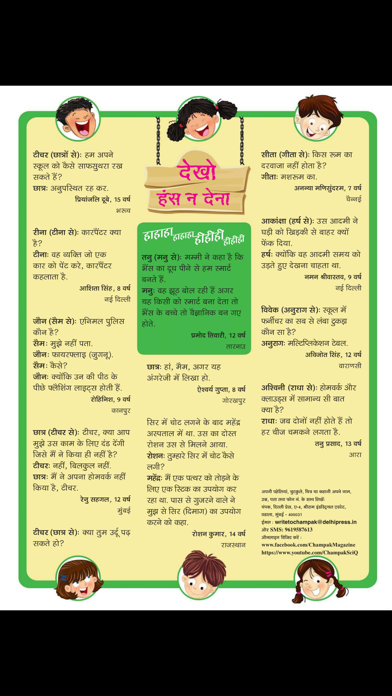 टीचर (छात्रों से): हम अपने
स्कूल को कैसे साफसुथरा रख
सकते हैं?
छात्र: अनुपस्थित रह कर.
प्रियांजलि दूबे, 15 वर्ष
भरूच
रीना (टीना से): कारपेंटर क्या
है?
टीना: वह व्यक्ति जो एक
कार को पेंट करे, कारपेंटर
कहलाता है.
आशिता सिंह, 8 वर्ष
नई दिल्ली
जीन (सैम से): एनिमल पुलिस
कौन है?
सैम: मुझे नहीं पता.
जीन: फायरफ्लाइ (जुगनू).
सैम: कैसे?
जीन: क्योंकि उन की पीठ के
पीछे फ्लैशिंग लाइट्स होती हैं.
रोहिनिश, 9 वर्ष
कानपुर
छात्र (टीचर से): टीचर, क्या आप
मुझे उस काम के लिए दंड देंगी
जिसे मैं ने किया ही नहीं है?
टीचर: नहीं, बिलकुल नहीं.
छात्र: मैं ने अपना होमवर्क नहीं
किया है, टीचर.
रेनु सहगल, 12 वर्ष
मुंबई
टीचर (छात्र से): क्या तुम उर्दू पढ़
सकते हो?
देखो
हंस न देना
हाहाहा हाहाहा हीहीही हीहीही
तनु (मनु से): मम्मी ने कहा है कि
भैंस का दूध पीने से हम स्मार्ट
बनते हैं.
मनु: वह झूठ बोल रही हैं अगर
यह किसी को स्मार्ट बना देता तो
भैंस के बच्चे तो वैज्ञानिक बन गए
होते.
प्रमोद तिवारी, 12 वर्ष
सारनाठ
छात्र: हां, मैम, अगर यह
अंगरेजी में लिखा हो.
ऐश्वर्य गुप्ता, 8 वर्ष
गोरखपुर
सिर में चोट लगने के बाद महेंद्र
अस्पताल में था. उस का दोस्त
रोशन उस से मिलने आया.
रोशन: तुम्हारे सिर में चोट कैसे
लगी?
महेंद्र: मैं एक पत्थर को तोड़ने के
लिए एक स्टिक का उपयोग कर
रहा था. पास से गुजरने वाले ने
मुझ से सिर (दिमाग) का उपयोग
करने को कहा.
रोशन कुमार, 14 वर्ष
राजस्थान
सीता (गीता से): किस रूम का
दरवाजा नहीं होता है?
गीता: मशरूम का.
अनन्या मणिसुंदरम, 7 वर्ष
चैन्नई
आकांक्षा (हर्ष से): उस आदमी ने
घड़ी को खिड़की से बाहर क्यों
फेंक दिया.
हर्ष: क्योंकि वह आदमी समय को
उड़ते हुए देखना चाहता था.
नमन श्रीवास्तव, 9 वर्ष
नई दिल्ली
विवेक (अनुराग से): स्कूल में
फर्नीचर का सब से लंबा टुकड़ा
कौन सा है?
अनुराग: मल्टिप्लिकेशन टेबल.
अविजोत सिंह, 12 वर्ष
वाराणसी
अश्विनी (राधा से): होमवर्क और
क्लाउड्स में सामान्य सी बात
क्या है?
राधा: जब दोनों नहीं होते हैं तो
हर चीज चमकने लगता है.
तनु प्रसाद, 13 वर्ष
आरा
अपनी पहेलियां, चुटकुले, चित्र या कहानी अपने नाम,
उम्र, पता तथा फोन नं. के साथ लिखो
चंपक, दिल्ली प्रेस,
वडाला, मुंबई -
ईमेल : writetochampak@delhipress.in
और SMS: 9619587613
ऑनलाइन विजिट करें :
www.facebook.com/ChampakMagazine
https://www.youtube.com/ChampakSciQ